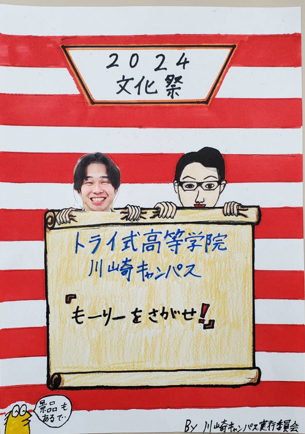 2024
文化祭
トライ式高等学院
川崎キャンパス
『もーりーをさがせ!』
景品も
あるで..
By 川崎キャンパス実行委員会